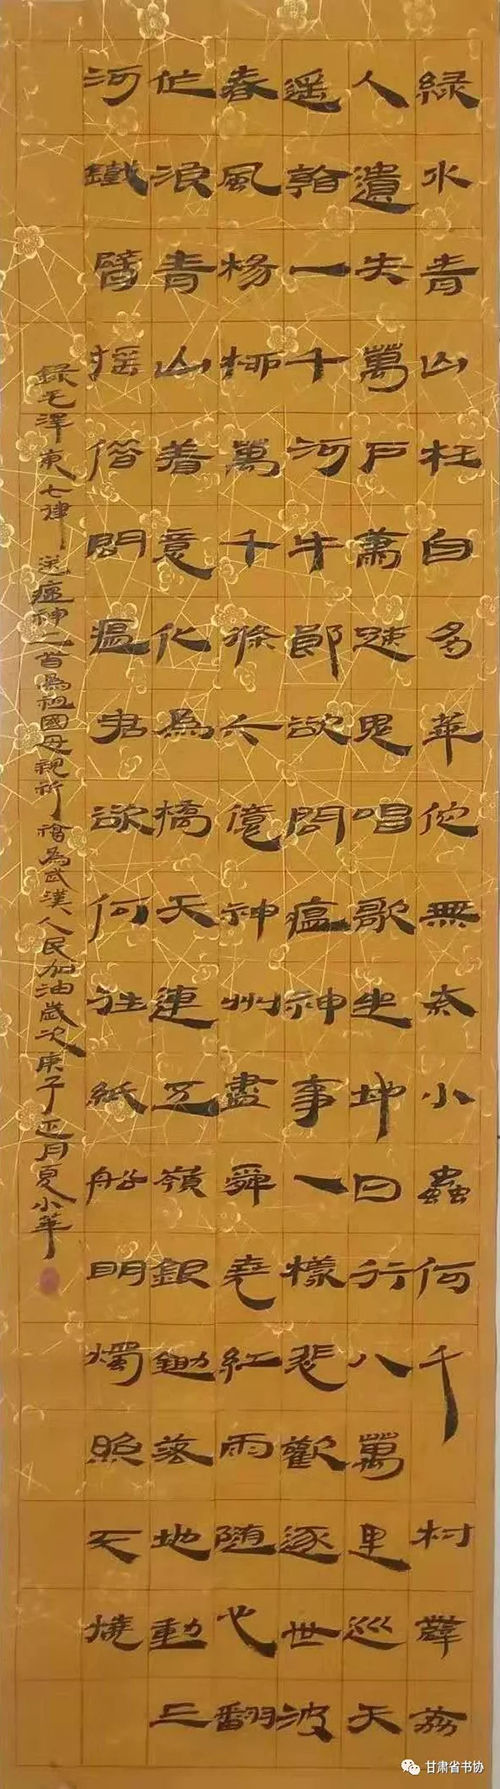 綠水青山枉自多華佗無奈小蟲何千村薜荔
人遺矢萬戶蕭疎鬼唱歌坐地日行八萬里巡天
遥看一千河牛郎欲問瘟神事一樣悲歡逐世波
春風楊柳萬千條六億神州盡舜堯紅雨随心翻
作浪青山着意化為橋天連五嶺銀鋤落地動三
河鐵臂摇借問瘟君欲何往紙船明燭照天燒
錄毛澤東七律送瘟神二首為祖國母親祈福為武漢人民加油歲次庚子正月夏小華
甘肃省书协